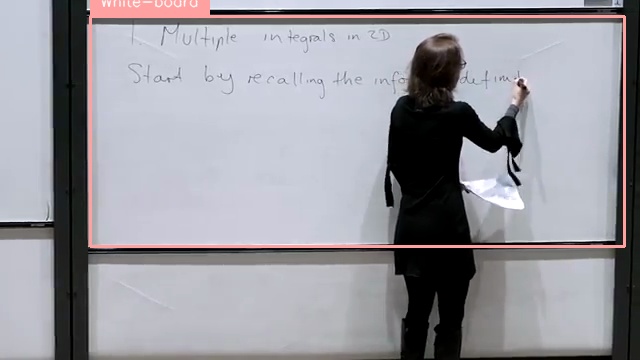 White-board
1. Multiple integrals in 2D
Start by recalling the